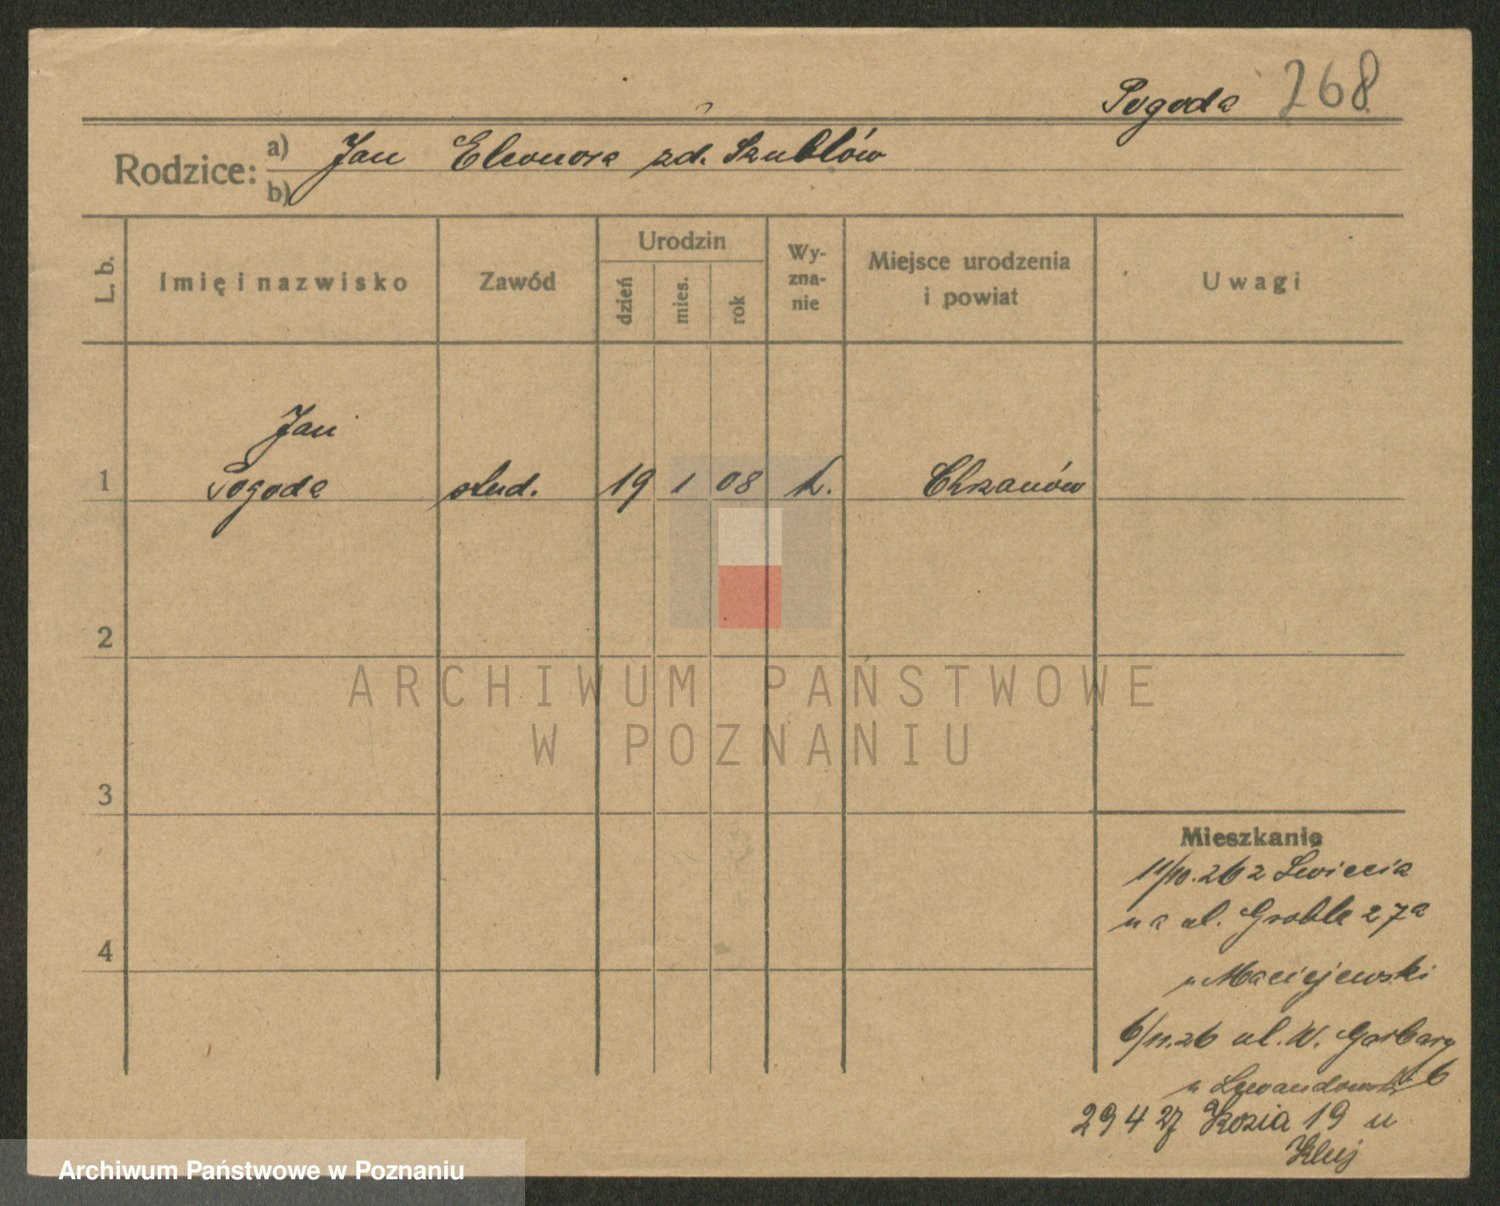 Pogoda 268
Rodzice: a) Jan Eleonora zd. Szublów
b)
L. b. Imię i nazwisko Zawód Urodzin dzień mies. rok Wyznanie Miejsce urodzenia i powiat Uwagi
Jan
1 Pogoda stud. 19 1 08 k. Chrzanów
2
ARCHIWUM PAŃSTWOWE
W POZNANIU
3
Mieszkanie
11/10.26 z Świecia
na ul. Groble 27a
4
u Maciejewski
6/11.26 ul. W. Garbary
u Lewandowski 6
29 4 27 Kozia 19 u
Archiwum Państwowe w Poznaniu